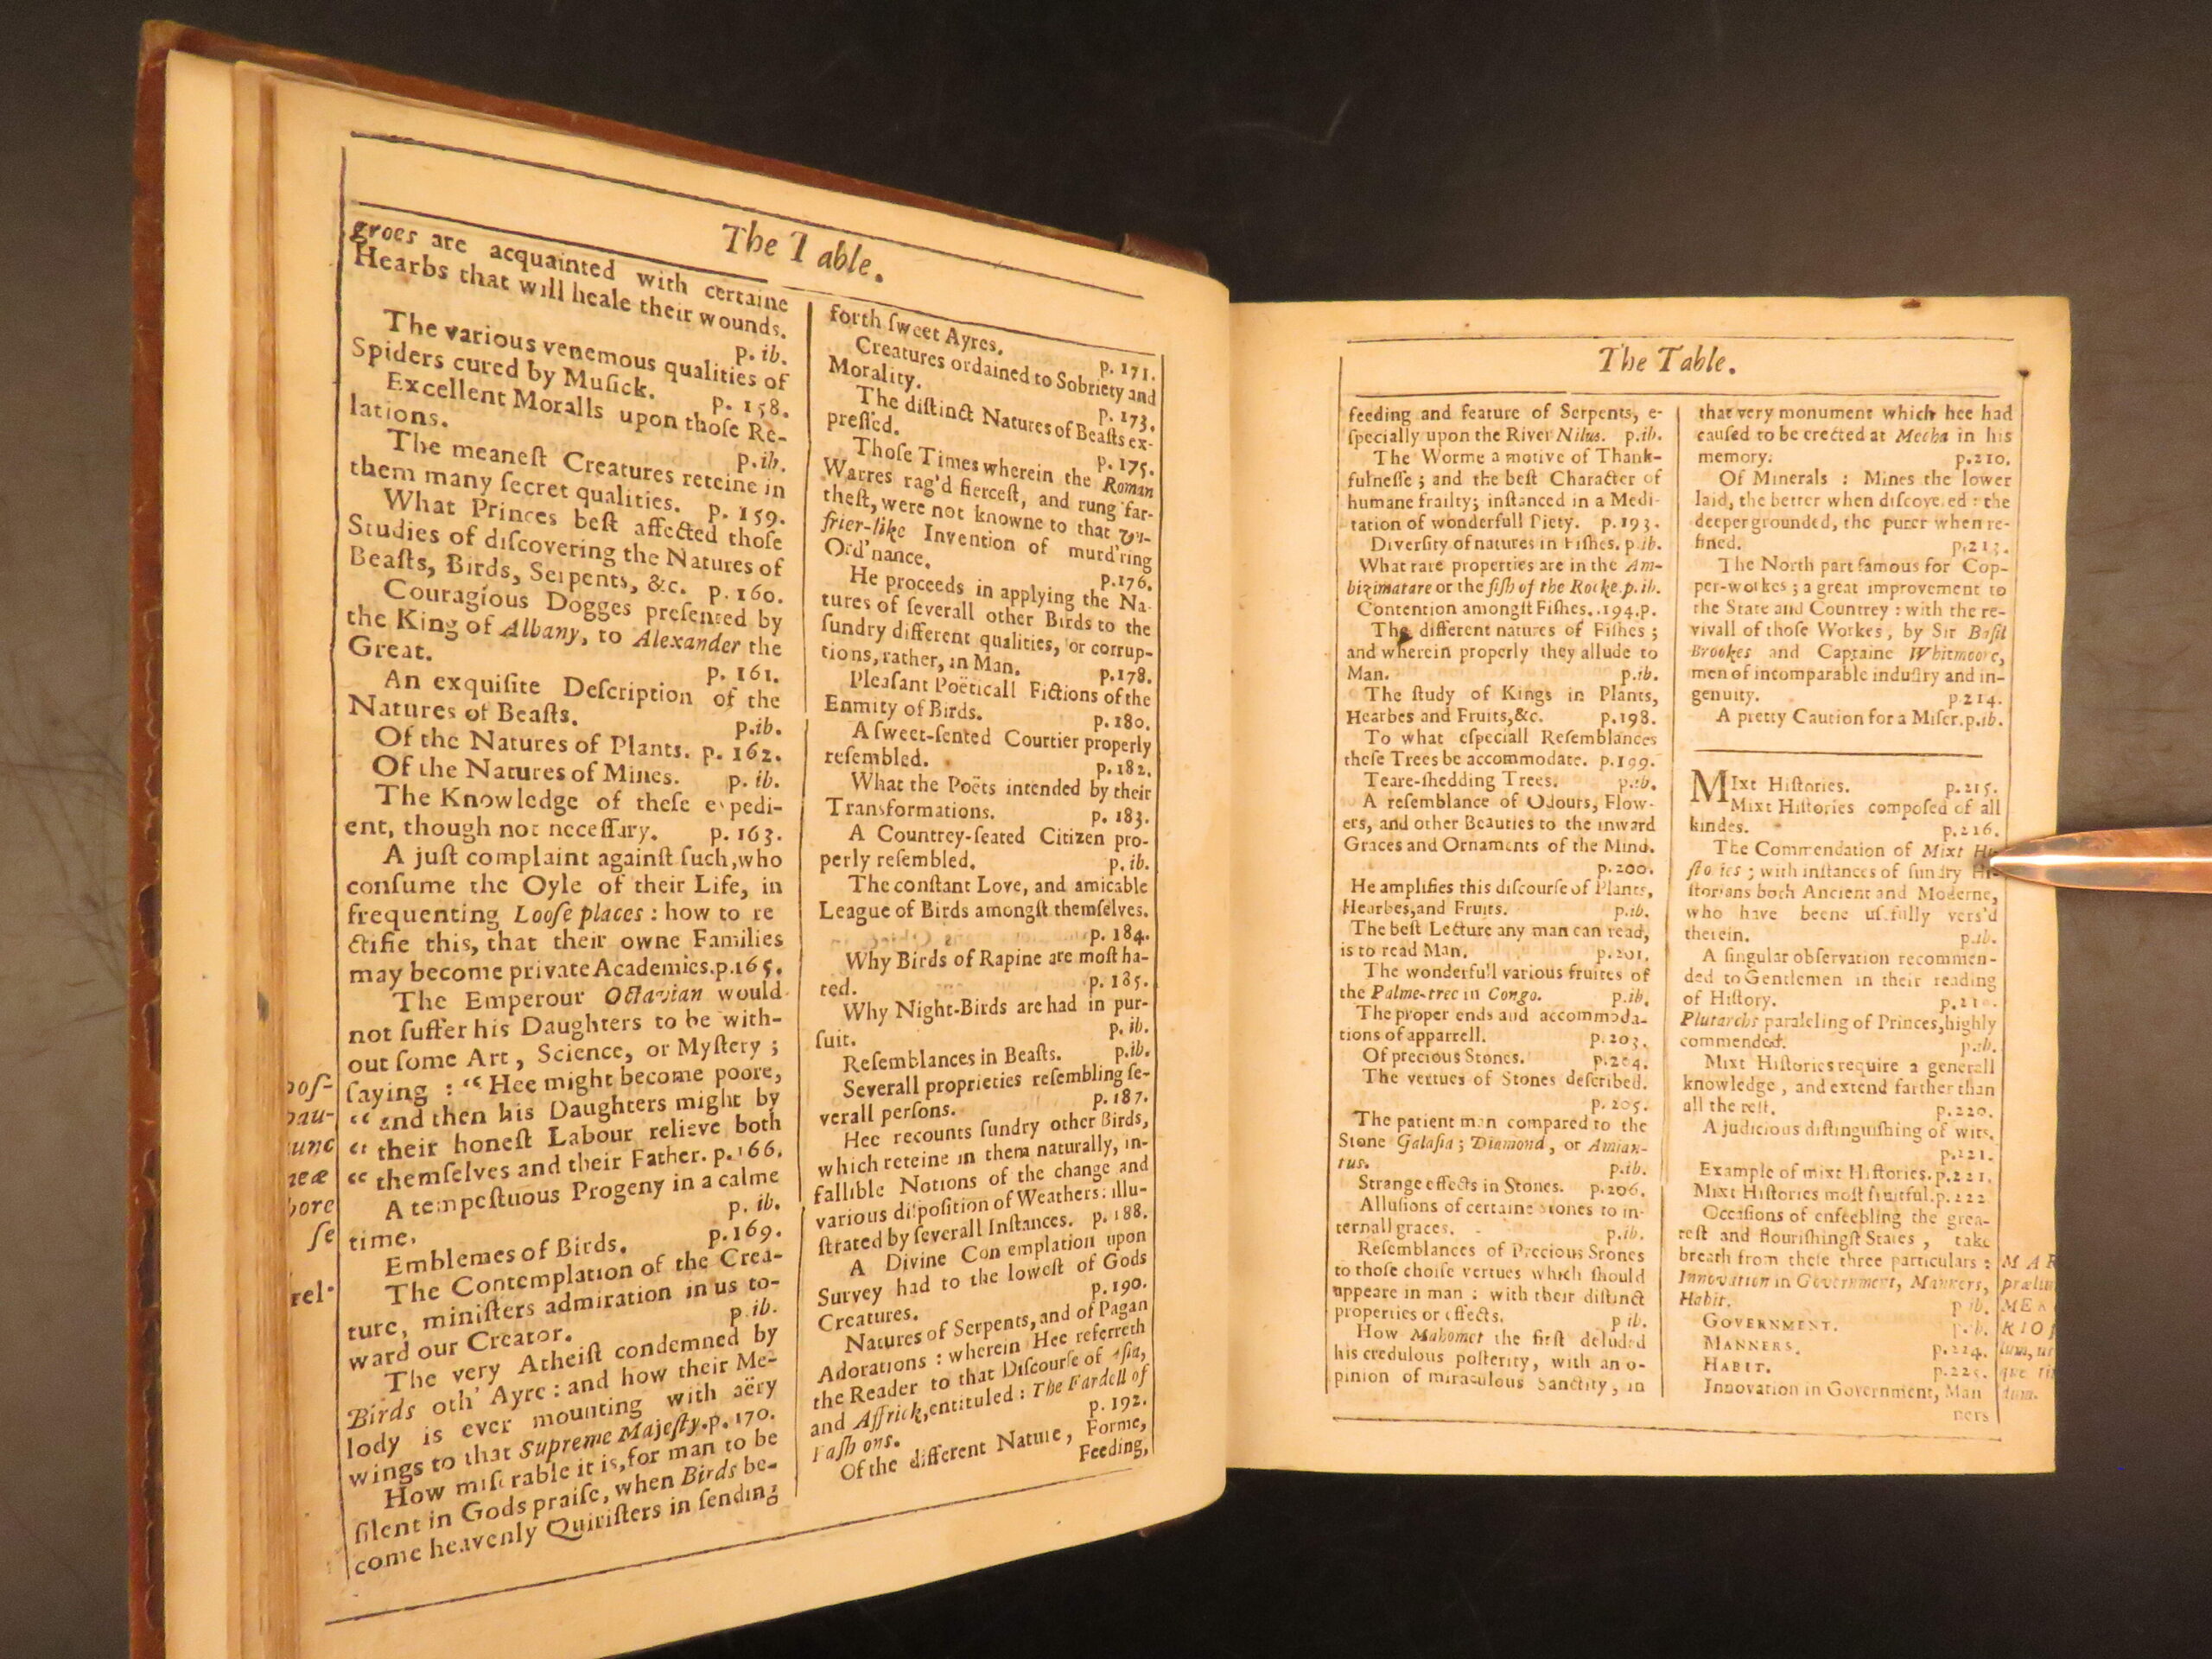 The Table.
groes are acquainted with certaine
Hearbs that will heale their wounds.
p. ib.
The various venemous qualities of
Spiders cured by Muſick. p. 158.
Excellent Moralls upon thoſe Re-
lations. p. ib.
The meaneſt Creatures reteine in
them many ſecret qualities. p. 159.
What Princes beſt affected thoſe
Studies of diſcovering the Natures of
Beaſts, Birds, Serpents, &c. p. 160.
Couragious Dogges preſented by
the King of Albany, to Alexander the
Great. p. 161.
An exquiſite Deſcription of the
Natures of Beaſts. p.ib.
Of the Natures of Plants. p. 162.
Of the Natures of Mines. p. ib.
The Knowledge of theſe expedi-
ent, though not neceſſary. p. 163.
A juſt complaint againſt ſuch, who
conſume the Oyle of their Life, in
frequenting Looſe places : how to re
ctifie this, that their owne Families
may become private Academies.p.165.
The Emperour Octavian would
not ſuffer his Daughters to be with-
out ſome Art, Science, or Myſtery ;
ſaying : “ Hee might become poore,
“ and then his Daughters might by
“ their honeſt Labour relieve both
“ themſelves and their Father. p. 166.
A tempeſtuous Progeny in a calme
time. p. ib.
Emblemes of Birds. p. 169.
The Contemplation of the Crea-
ture, miniſters admiration in us to-
ward our Creator. p ib.
The very Atheiſt condemned by
Birds oth' Ayre : and how their Me-
lody is ever mounting with aëry
wings to that Supreme Majeſty.p. 170.
How miſerable it is, for man to be
ſilent in Gods praiſe, when Birds be-
come heavenly Quiriſters in ſending
forth ſweet Ayres. p. 171.
Creatures ordained to Sobriety and
Morality. p. 173.
The diſtinct Natures of Beaſts ex-
preſſed. p. 175.
Thoſe Times wherein the Roman
Warres rag'd fierceſt, and rung far-
theſt, were not knowne to that Vi-
frier-like Invention of murd'ring
Ord'nance. p.176.
He proceeds in applying the Na-
tures of ſeverall other Birds to the
ſundry different qualities, or corrup-
tions, rather, in Man. p.178.
Pleaſant Poëticall Fictions of the
Enmity of Birds. p. 180.
A ſweet-ſented Courtier properly
reſembled. p. 182.
What the Poëts intended by their
Transformations. p. 183.
A Countrey-ſeated Citizen pro-
perly reſembled. p. ib.
The conſtant Love, and amicable
League of Birds amongſt themſelves.
p. 184.
Why Birds of Rapine are moſt ha-
ted. p. 185.
Why Night-Birds are had in pur-
ſuit. p. ib.
Reſemblances in Beaſts. p.ib.
Severall proprieties reſembling ſe-
verall perſons. p. 187.
Hee recounts ſundry other Birds,
which reteine in them naturally, in-
fallible Notions of the change and
various diſpoſition of Weathers: illu-
ſtrated by ſeverall Inſtances. p. 188.
A Divine Con emplation upon
Survey had to the loweſt of Gods
Creatures. p. 190.
Natures of Serpents, and of Pagan
Adorations : wherein Hee referreth
the Reader to that Diſcourſe of Aſia,
and Affrick, entituled : The Fardell of
Faſh ons. p. 192.
Of the different Nature, Forme,
Feeding,
The Table.
feeding and feature of Serpents, e-
ſpecially upon the River Nilus. p.ib.
The Worme a motive of Thank-
fulneſſe ; and the beſt Character of
humane frailty; inſtanced in a Medi-
tation of wonderfull Piety. p. 193.
Diverſity of natures in Fiſhes. p ib.
What rare properties are in the Am-
bizimatare or the fiſh of the Rocke.p.ib.
Contention amongſt Fiſhes. .194.p.
The different natures of Fiſhes ;
and wherein properly they allude to
Man. p.ib.
The ſtudy of Kings in Plants,
Hearbes and Fruits,&c. p.198.
To what eſpeciall Reſemblances
theſe Trees be accommodate. p.199.
Teare-ſhedding Trees. p.ib.
A reſemblance of Odours, Flow-
ers, and other Beauties to the inward
Graces and Ornaments of the Mind.
p.200.
He amplifies this diſcourſe of Plants,
Hearbes,and Fruits. p.ib.
The beſt Lecture any man can read,
is to read Man. p.201.
The wonderfull various fruites of
the Palme-tree in Congo. p.ib.
The proper ends and accommoda-
tions of apparrell. p.203.
Of precious Stones. p.204.
The vertues of Stones deſcribed.
p. 205.
The patient man compared to the
Stone Galaſia ; Diamond, or Amian-
tus. p.ib.
Strange effects in Stones. p.206.
Alluſions of certaine ſtones to in-
ternall graces. p.ib.
Reſemblances of Precious Stones
to thoſe choiſe vertues which ſhould
appeare in man : with their diſtinct
properties or effects. p ib.
How Mahomet the firſt deluded
his credulous poſterity, with an o-
pinion of miraculous Sanctity, in
that very monument which hee had
cauſed to be erected at Mecha in his
memory. p.210.
Of Minerals : Mines the lower
laid, the better when diſcovered : the
deeper grounded, the purer when re-
fined. p.213.
The North part famous for Cop-
per-workes ; a great improvement to
the State and Countrey : with the re-
vivall of thoſe Workes, by Sir Baſil
Brookes and Captaine Whitmoore,
men of incomparable induſtry and in-
genuity. p 214.
A pretty Caution for a Miſer.p.ib.
MIxt Hiſtories. p.215.
Mixt Hiſtories compoſed of all
kindes. p.216.
The Commendation of Mixt Hi-
ſto ies ; with inſtances of ſundry Hi-
ſtorians both Ancient and Moderne,
who have beene uſefully vers'd
therein. p.ib.
A ſingular obſervation recommen-
ded to Gentlemen in their reading
of Hiſtory.
Plutarchs paraleling of Princes,highly
commended. p.ib.
Mixt Hiſtories require a generall
knowledge, and extend farther than
all the reſt. p.220.
A judicious diſtinguiſhing of wits.
p.221.
Example of mixt Hiſtories.p.221.
Mixt Hiſtories moſt fruitful.p.222
Occaſions of enfeebling the grea-
teſt and flouriſhingſt States, take
breath from theſe three particulars :
Innovation in Government, Manners,
Habit. p ib.
GOVERNMENT. p.ib.
MANNERS. p.224.
HABIT. p.225.
Innovation in Government, Man
ners